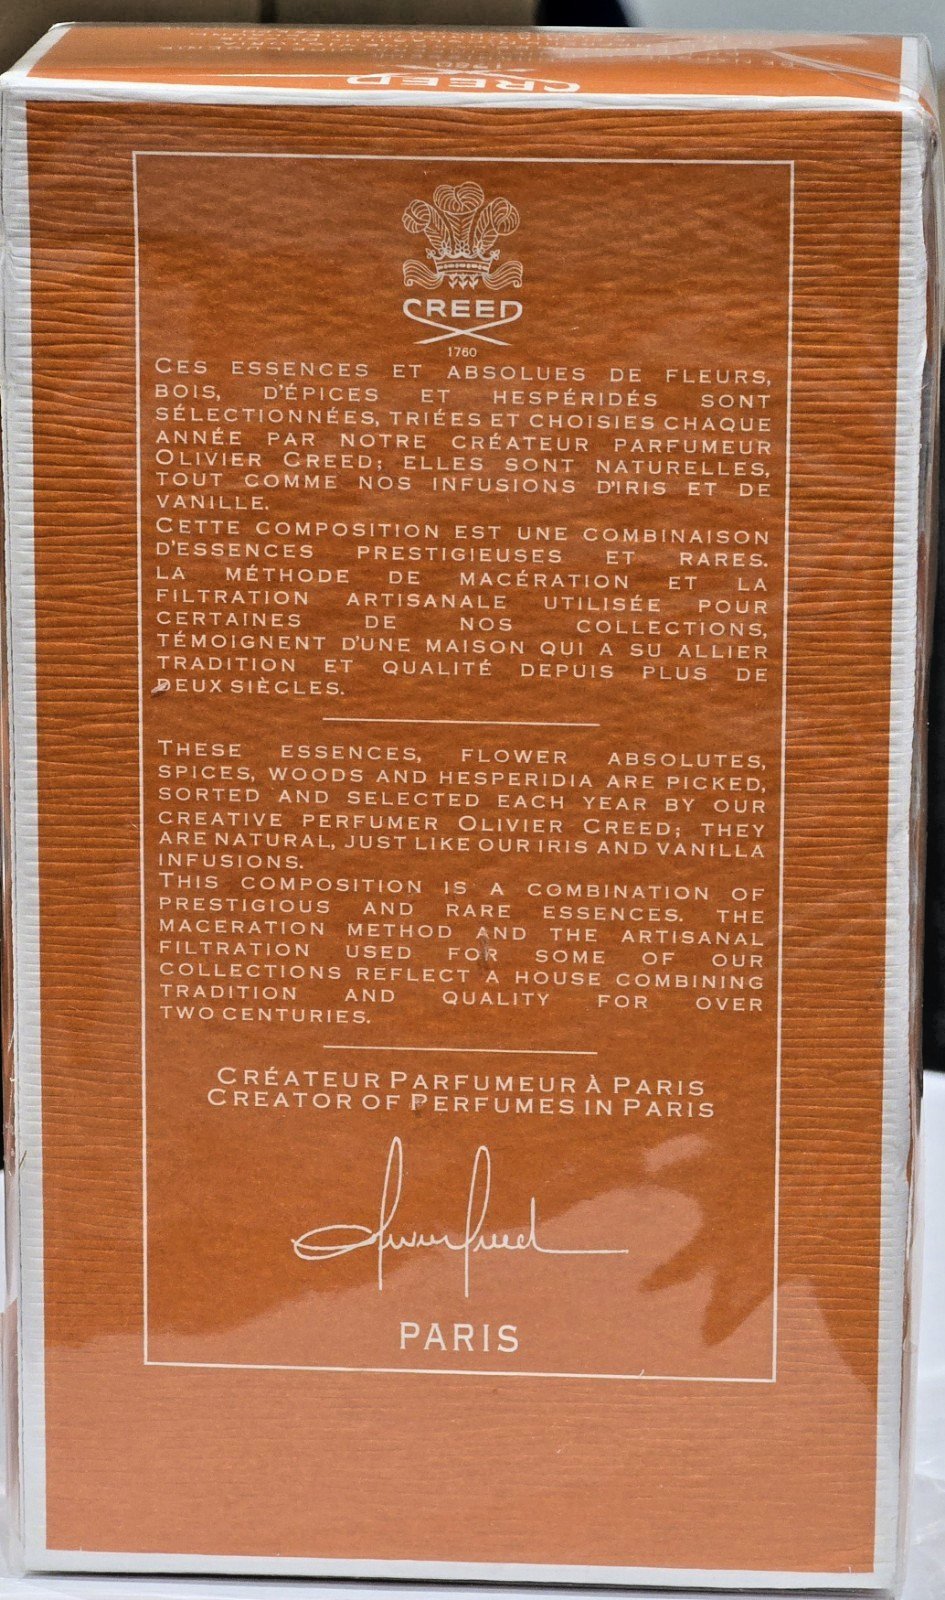 CREED
CREED
1760
CES ESSENCES ET ABSOLUES DE FLEURS,
BOIS, D'ÉPICES ET HESPÉRIDÉS SONT
SÉLECTIONNÉES, TRIÉES ET CHOISIES CHAQUE
ANNÉE PAR NOTRE CRÉATEUR PARFUMEUR
OLIVIER CREED; ELLES SONT NATURELLES,
TOUT COMME NOS INFUSIONS D'IRIS ET DE
VANILLE.
CETTE COMPOSITION EST UNE COMBINAISON
D'ESSENCES PRESTIGIEUSES ET RARES.
LA MÉTHODE DE MACÉRATION ET LA
FILTRATION ARTISANALE UTILISÉE POUR
CERTAINES DE NOS COLLECTIONS,
TÉMOIGNENT D'UNE MAISON QUI A SU ALLIER
TRADITION ET QUALITÉ DEPUIS PLUS DE
DEUX SIÈCLES.
THESE ESSENCES, FLOWER ABSOLUTES,
SPICES, WOODS AND HESPERIDIA ARE PICKED,
SORTED AND SELECTED EACH YEAR BY OUR
CREATIVE PERFUMER OLIVIER CREED; THEY
ARE NATURAL, JUST LIKE OUR IRIS AND VANILLA
INFUSIONS.
THIS COMPOSITION IS A COMBINATION OF
PRESTIGIOUS AND RARE ESSENCES. THE
MACERATION METHOD AND THE ARTISANAL
FILTRATION USED FOR SOME OF OUR
COLLECTIONS REFLECT A HOUSE COMBINING
TRADITION AND QUALITY FOR OVER
TWO CENTURIES.
CRÉATEUR PARFUMEUR À PARIS
CREATOR OF PERFUMES IN PARIS
Olivier Creed
PARIS